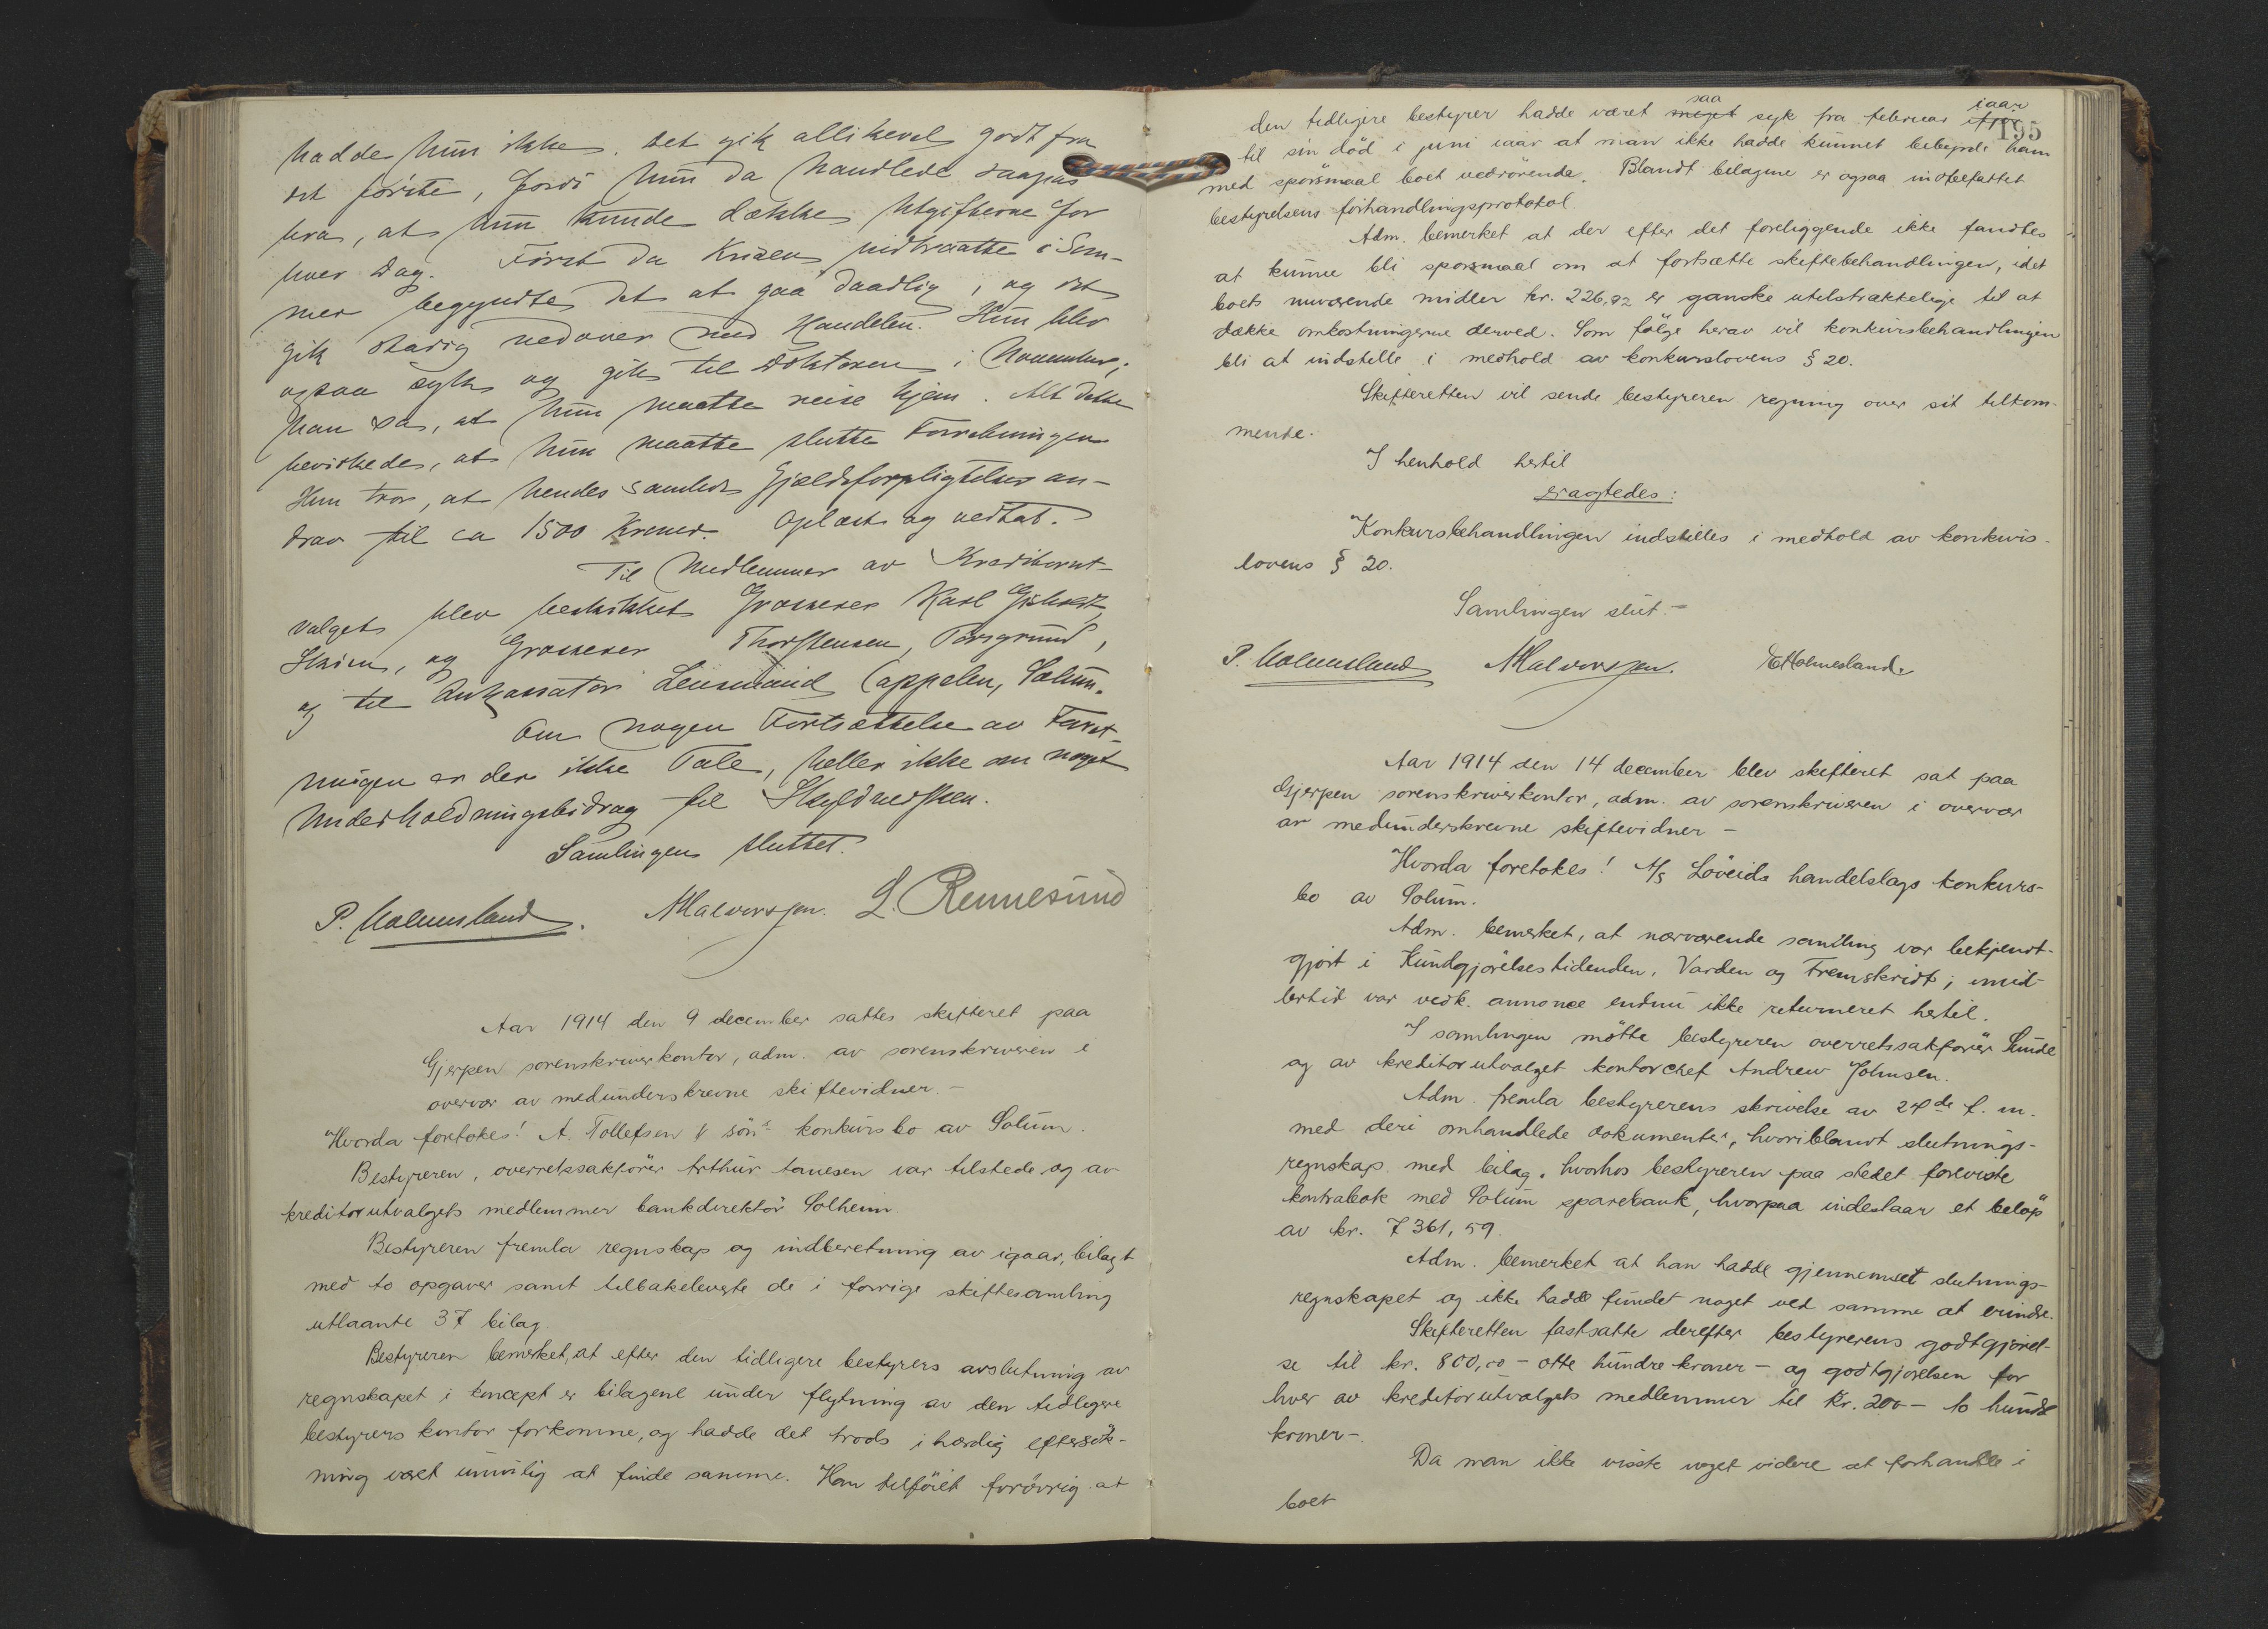 hadde hun ikke. Det gik allikevel godt fra
det første, fordi hun da handlede saapas
bra, at hun kunde dække Utgifterne for
hver Dag. Først da Krisen indtraatte i Som-
mer begyndte det at gaa daarlig, og det
gik stadig nedover med Handelen. Hun blev
ogsaa syk og gik til Doktoren i November;
han sa, at hun maatte reise hjem. Alt dette
bevirkedes, at hun maatte slutte Forretningen.
Hun tror, at hendes samlede Gjældsforpligtelser an-
drar til ca 1500 Kroner. Oplæst og vedtat.
Til Medlemmer av Kreditorut-
valget blev beskikket Grosserer Karl
Skien, og Grosserer Thorstensen, Porsgrund,
og til Inkassator Lensmand Cappelen, Solum.
Om nogen Fortsættelse av Forret-
ningen er der ikke Tale, heller ikke om noget
Underholdningsbidrag til Skyldnersken.
Samlingen sluttet.
P. Holmesland. AHalvorsen. L. Rennesund
Aar 1914 den 9 december sattes skifteret paa
Gjerpen sorenskriverkontor, adm. av sorenskriveren i
overvær av medunderskrevne skiftevidner. –
Hvorda foretokes! A. Tollefsen & søns konkursbo av Solum.
Bestyreren, overretssakfører Arthur Tanesen var tilstede og av
kreditorutvalgets medlemmer bankdirektør Solheim.
Bestyreren fremla regnskap og indberetning av igaar, bilagt
med to opgaver samt tilbakeleverte de i forrige skiftesamling
utlaante 37 bilag.
Bestyreren bemerket, at efter den tidligere bestyrers avslutning av
regnskapet i koncept er bilagene under flytning av den tidligere
bestyrers kontor forkomne, og hadde det trods ihærdig eftersøk-
ning været umulig at finde samme. Han tilføiet forøvrig at
195
den tidligere bestyrer hadde været meget saa syk fra februar iaar
til sin død i juni iaar at man ikke hadde kunnet bebyrde ham
med spørsmaal boet vedrørende. Blandt bilagene er ogsaa indbefattet
bestyrelsens forhandlingsprotokol.
Adm. bemerket at der efter det foreliggende ikke fandtes
at kunne bli spørsmaal om at fortsætte skiftebehandlingen, idet
boets nuværende midler kr. 226,92 er ganske utilstrækkelige til at
dække omkostningerne derved. Som følge herav vil konkursbehandlingen
bli at indstille i medhold av konkurslovens § 20.
Skifteretten vil sende bestyreren regning over sit tilkom-
mende.
I henhold hertil
eragtedes:
Konkursbehandlingen indstilles i medhold av konkurs-
lovens § 20.
Samlingen slut. –
P. Holmesland AHalvorsen. EHolmesland.
Aar 1914 den 14 december blev skifteret sat paa
Gjerpen sorenskriverkontor, adm. av sorenskriveren i overvær
av medunderskrevne skiftevidner –
Hvorda foretokes! A/S Løveids handelslags konkurs-
bo av Solum.
Adm. bemerket, at nærværende samling var bekjendt-
gjort i Kundgjørelsestidenden, Varden og Fremskridt; imid-
lertid var vedk. annonce endnu ikke returneret hertil.
I samlingen møtte bestyreren overretssakfører Lunde
og av kreditorutvalget kontorchef Andrew Johnsen.
Adm. fremla bestyrerens skrivelse av 24de f. m.
med deri omhandlede dokumenter, hvoriblandt slutnings-
regnskap med bilag, hvorhos bestyreren paa stedet foreviste
kontrabok med Solum sparebank, hvorpaa indestaar et beløp
av kr. 7361,59.
Adm. bemerket at han hadde gjennemset slutnings-
regnskapet og ikke hadde fundet noget ved samme at erindre.
Skifteretten fastsatte derefter bestyrerens godtgjørel-
se til kr. 800,00 – otte hundre kroner – og godtgjørelsen for
hver av kreditorutvalgets medlemmer til Kr. 200 – to hundre
kroner –.
Da man ikke visste noget videre at forhandle i
boet